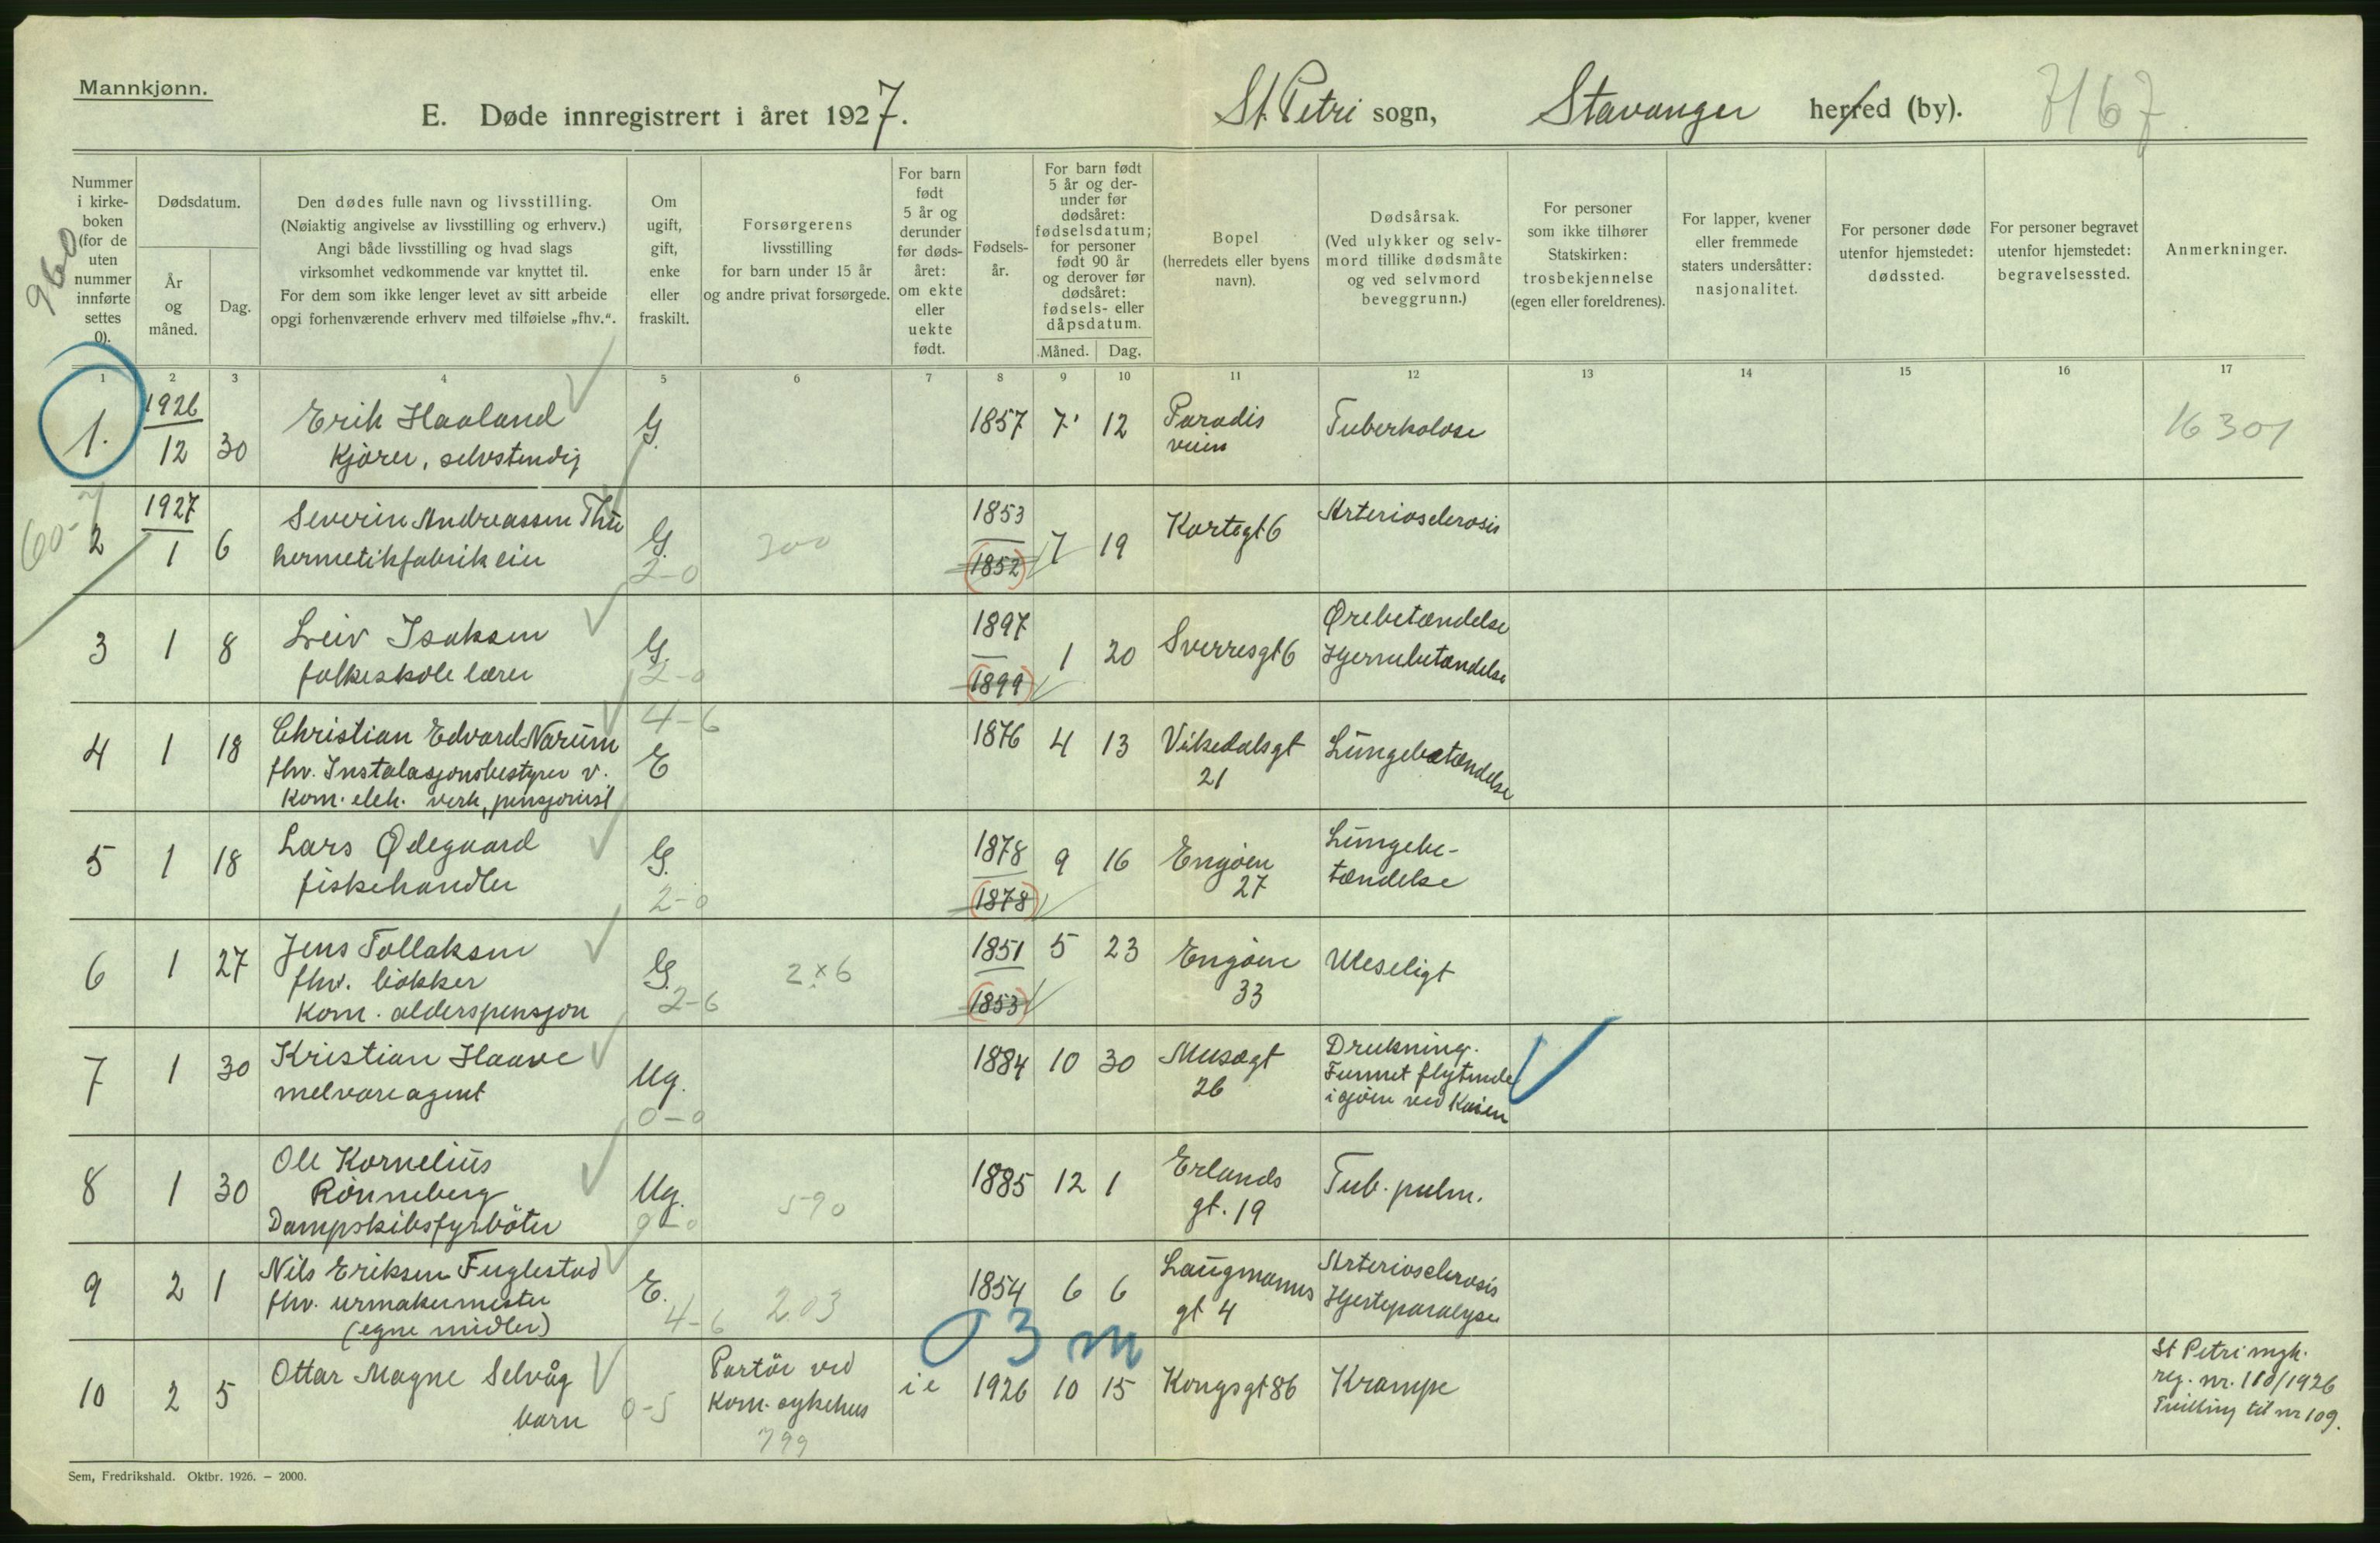 Mannkjønn.
E. Døde innregistrert i året 1927. St. Petri sogn, Stavanger herred (by). 7167
960
Nummer i kirkeboken (for de uten nummer innførte settes 0).
Dødsdatum.
År og måned.
Dag.
Den dødes fulle navn og livsstilling.
(Nøiaktig angivelse av livsstilling og erhverv.)
Angi både livsstilling og hvad slags
virksomhet vedkommende var knyttet til.
For dem som ikke lenger levet av sitt arbeide
opgi forhenværende erhverv med tilføielse „fhv.“.
Om ugift, gift, enke eller fraskilt.
Forsørgerens
livsstilling
for barn under 15 år
og andre privat forsørgede.
For barn født 5 år og derunder før dødsåret: om ekte eller uekte født.
Fødselsår.
For barn født 5 år og derunder før dødsåret: fødselsdatum; for personer født 90 år og derover før dødsåret: fødsels- eller dåpsdatum.
Måned. Dag.
Bopel
(herredets eller byens navn).
Dødsårsak.
(Ved ulykker og selvmord tillike dødsmåte og ved selvmord beveggrunn.)
For personer som ikke tilhører Statskirken: trosbekjennelse (egen eller foreldrenes).
For lapper, kvener eller fremmede staters undersåtter: nasjonalitet.
For personer døde utenfor hjemstedet: dødssted.
For personer begravet utenfor hjemstedet: begravelsessted.
Anmerkninger.
1 2 3 4 5 6 7 8 9 10 11 12 13 14 15 16 17
1. 1926 12 30 Erik Haaland G. 1857 7 12 Paradis Tuberkolose 16301
Kjører, selvstendig veien
60-7
2 1927 1 6 Severin Andreassen Thu G. 300 1853 7 19 Kortegt 6 Arteriosclerosis
hermetikfabrikeier 2-0 (1852)
3 1 8 Leiv Isaksen G 1897 1 20 Sverresgt 6 Ørebetændelse
folkeskolelærer 2-0 (1899) Hjernebetændelse
4 1 18 Christian Edvard Narum 4-6 E 1876 4 13 Vikedalsgt Lungebetændelse
fhv. Instalasjonsbestyrer v. 21
Kom. elek. verk, pensjonist
5 1 18 Lars Ødegaard G. 1878 9 16 Engøen Lungebe-
fiskehandler 2-0 (1878) 27 tændelse
6 1 27 Jens Tollaksen G. 2×6 1851 5 23 Engøen Uleseligt
fhv. bøkker 2-6 (1853) 33
Kom. alderspensjon
7 1 30 Kristian Haave Ug. 1884 10 30 Musegt Drukning.
melvareagent 0-0 26 Funnet flytende
i sjøen ved Kaien
8 1 30 Ole Kornelius Ug. 590 1885 12 1 Erlands Tub. pulm.
Rønneberg 0-0 gt. 19
Dampskibsfyrbøter
9 2 1 Nils Eriksen Fuglestad E. 203 1854 6 6 Laugmanns Arteriosclerosis
fhv. urmakermester 4-6 gt 4 Hjerteparalyse
(egne midler)
03 m
10 2 5 Ottar Magne Selvåg Portør ved ie 1926 10 15 Kongsgt 86 Krampe St Petri mgh.
barn 0-5 Kom. sykehus reg. nr. 110/1926
799 Tvilling til nr 109.
Sem, Fredrikshald. Oktbr. 1926. – 2000.